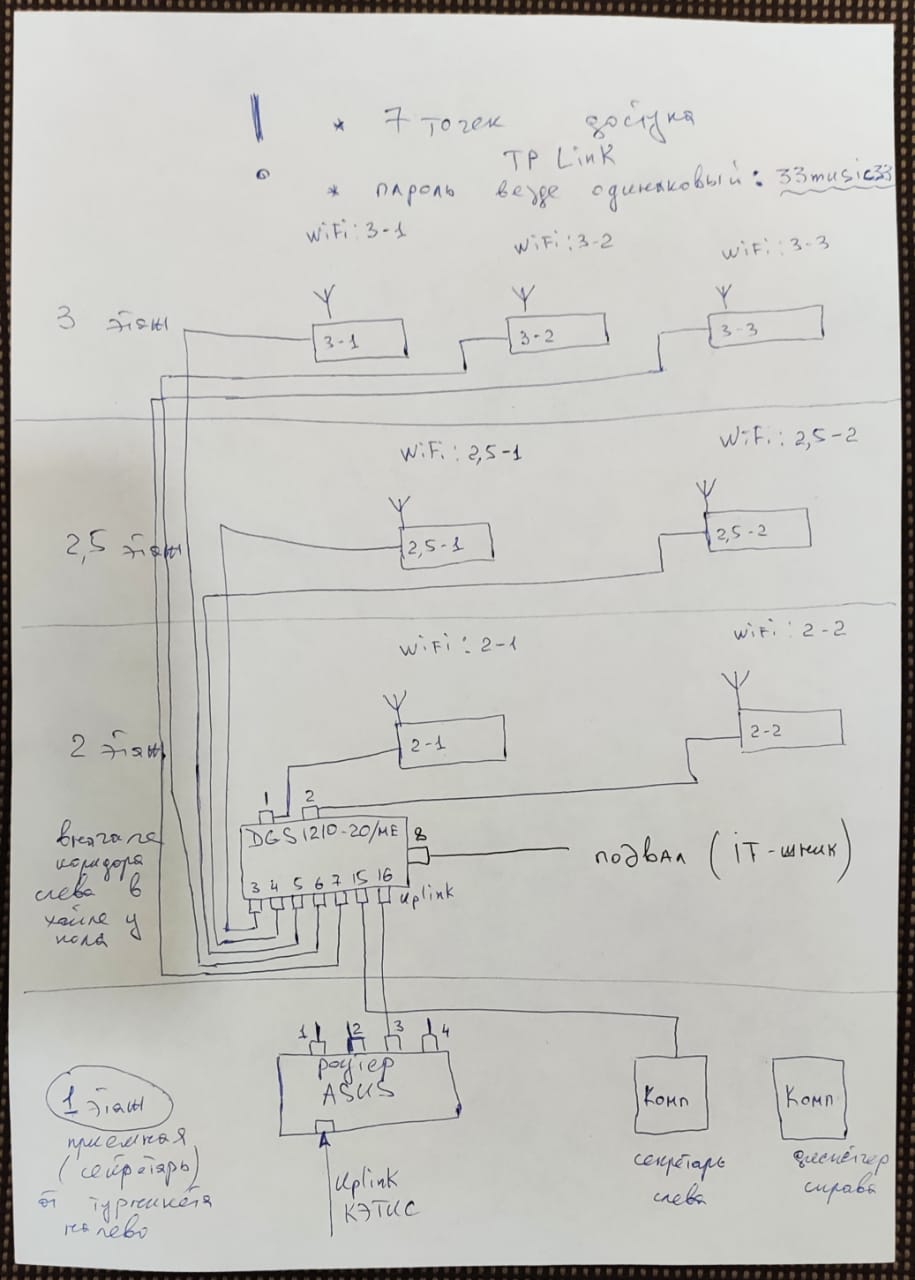 ! * 7 точек доступа
TP Link
* пароль везде одинаковый: 33music33
WiFi: 3-1
WiFi: 3-2
WiFi: 3-3
3 этаж
3-1
3-2
3-3
WiFi: 2,5-1
WiFi: 2,5-2
2,5 этаж
2,5-1
2,5-2
WiFi: 2-1
WiFi: 2-2
2 этаж
2-1
2-2
1 2
DGS 1210-20/ME
8
подвал (iT-шник)
3 4 5 6 7 15 16
Uplink
вначале
коридора
слева в
у
пола
1 2 3 4
роутер
ASUS
1 этаж
приемная
(секретарь)
от турникета
налево
Uplink
КЭТИС
Комп
секретарь
слева
Комп
справа